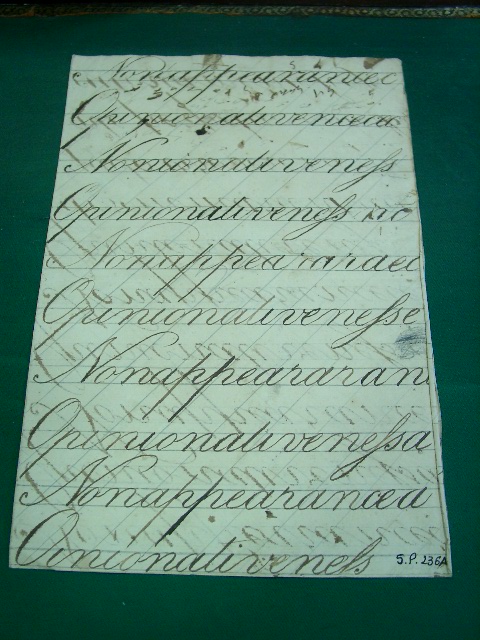 Nonappearancec
Opinionativenceac
Nonionativeness
Opinionativeness no
Nonappeararded
Opinionativenesse
Nonappeararan
Opinionativenessa
Nonappearanced
Oinionativeness
S.P. 236A